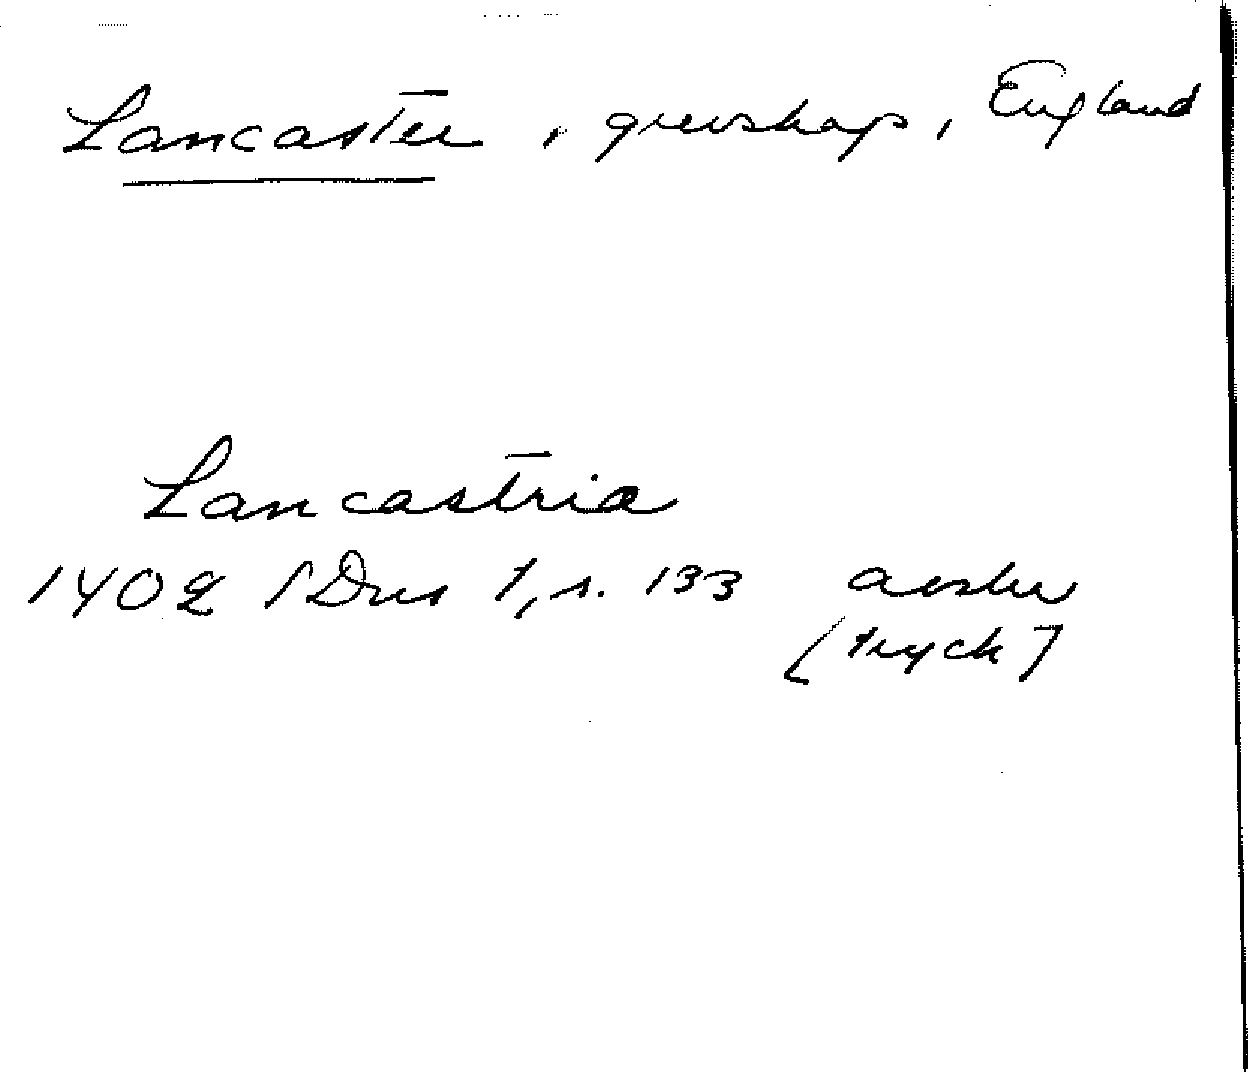 Lancaster, grevskap, England
Lancastria
1402 SDns 1, s. 133 avskr
[tryck]